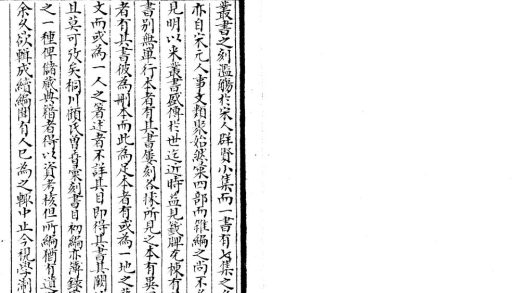 叢書之刻濫觴於宋人群賢小集而一書有七集之
亦自宋元人事文類聚始然彙四部而雜編之尚不
見明以來叢書盛傳於世迄近時益見籤牌充棟有
書別無單行本者有其書屢刻各據所見之本有異
者有其書彼為刪本而此為足本者有或為一地之
文而或為一人之著述者不詳其目即得其書其闕
且莫可攷矣桐川顧氏曾彙刻書目初編亦簿錄
之一種俾儲藏典籍者得以資考核但所編猶有遺
余久欲輯成續編聞有人已為之輒中止今視學湖